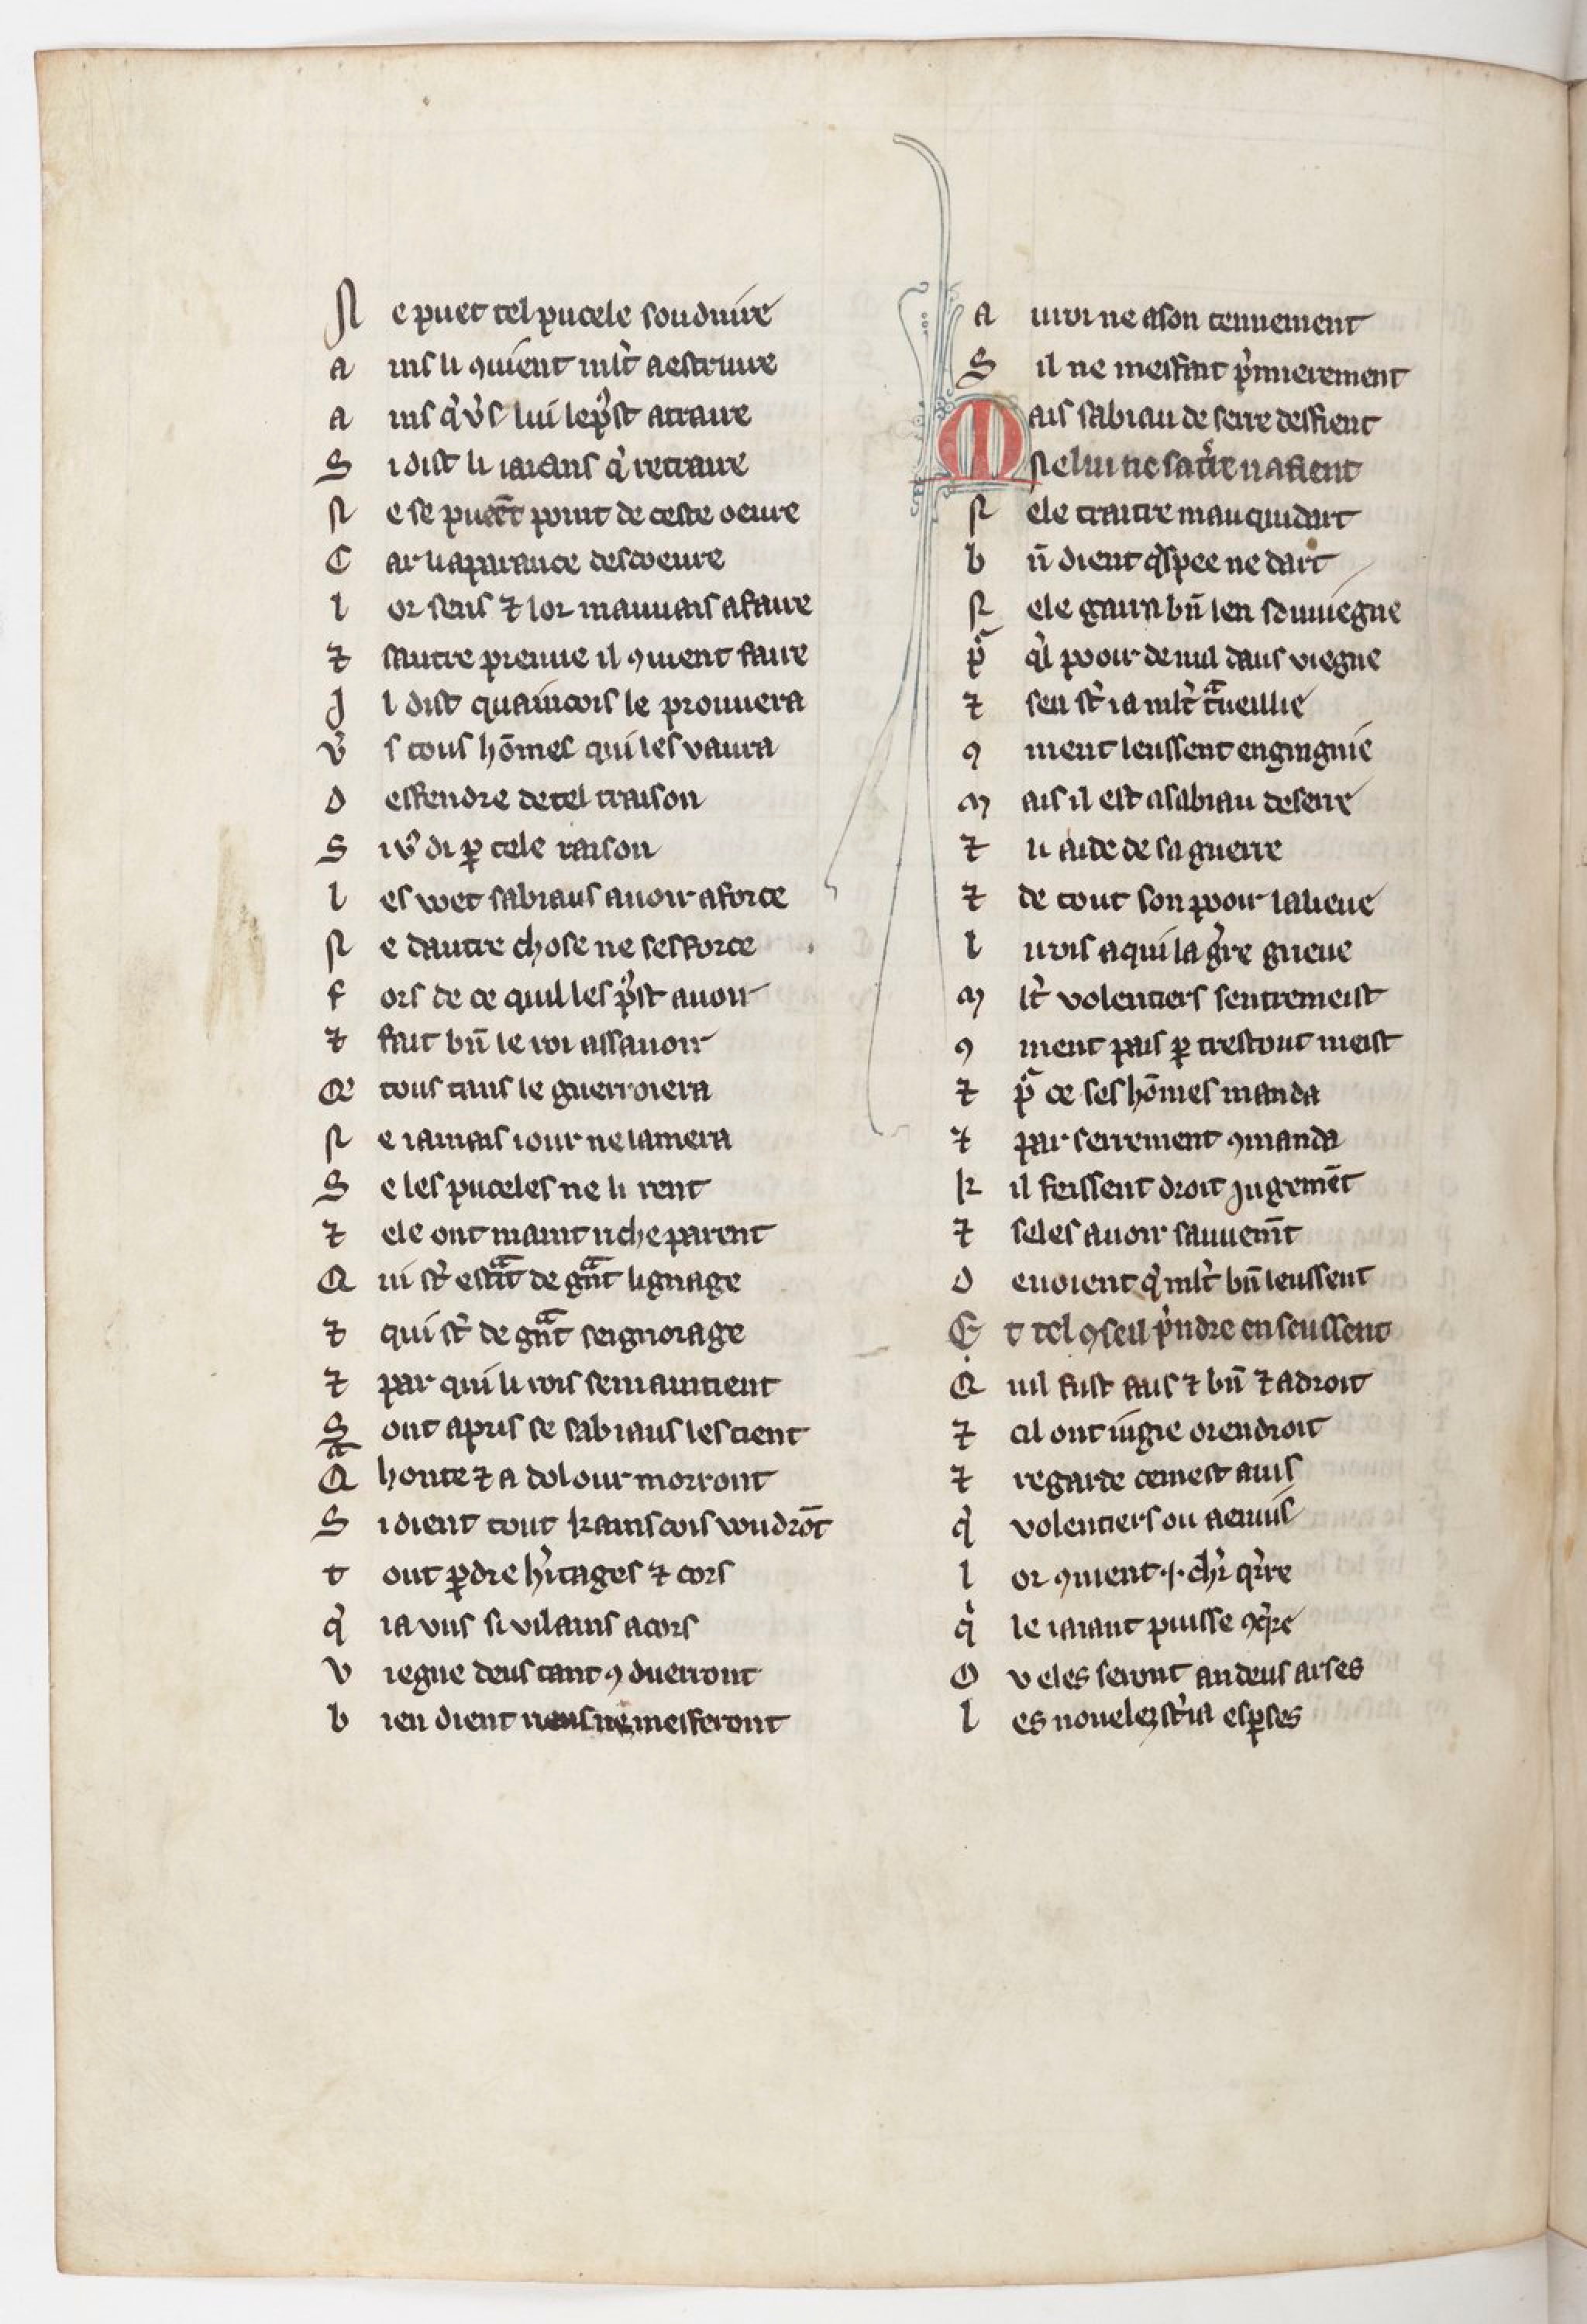 Ne puet tel pucele souduire
ains li ꝯuient ml̃t aestruire
ains q̉ v̉s lui le pỏst atraire
Si dist li iaians q̉ retraire
Ne se pueẽt point de ceste oeure
Car li aparance descoeure
lor sens ⁊ lor mauuais afaire
⁊ sautre prenue il ꝯuient faire
Il dist quaincois le prouuera
v̉s tous hõmes qui les vaura
desfendre de tel traison
Si vỏ di ꝑ cele raison
les voet sabiaus auoir aforce
Ne dautre chose ne sesforce
fors de ce quil les pỏst auoir
⁊ fait bn̄ le roi assauoir
Q̉ tous tans le guerroiera
Ne iamais iour ne lamera
Se les puceles ne li rent
⁊ ele ont maint riche parent
Qui st̉ estãt de gñt lignage
⁊ qui st̉ de gñt seignorage
⁊ par qui li rois semaintient
Sont apris se sabiaus les tient
Qᵃ honte ⁊ a dolour morront
Si dient tout kainscois voudrōt
tout ꝑdre h̉itages ⁊ cors
q̉ ia vns si vilains acors
viegne deus tant ꝯ duerront
bien dient ne mesferont
au roi ne ason tenuement
Sil ne mesfait p̉mierement
Mais sabiau de serre desfient
Ne lui ne sa t̉re nafient
Ne le traitre mauquidart
bn̄ dient q̉spee ne dart
Ne le gaura bn̄ len souuiegne
pᵃ q̉l pooir de nul daus viegne
⁊ sen st̉ ia ml̃t tᵃueillie
ꝯment leussent engingnie
Mais il est asabiau de serre
⁊ li aide de sa guerre
⁊ de tout son pooir laliene
li rois aqui la g̉re grieue
Ml̃t volentiers sentremeist
ꝯment pais ꝑ trestout meist
⁊ pᵃ ce ses hõmes manda
⁊ par serrement ꝯmanda
kil feissent droit jugemẽt
⁊ seles auoir sauuem̄t
deuoient q̉ ml̃t bn̄ leussent
Et tel ꝯseil p̉ndre en seussent
Quil fust fais ⁊ bn̄ ⁊ adroit
⁊ cil ont iugie orendroit
⁊ regarde cemest auis
q̉ volentiers ou aenuis
lor ꝯuient ·j· ch̉r q̉rre
q̉ le iaiant puisse ꝯq̉re
Ov eles seront andeus arses
les nouelez st̉ ia esꝑses